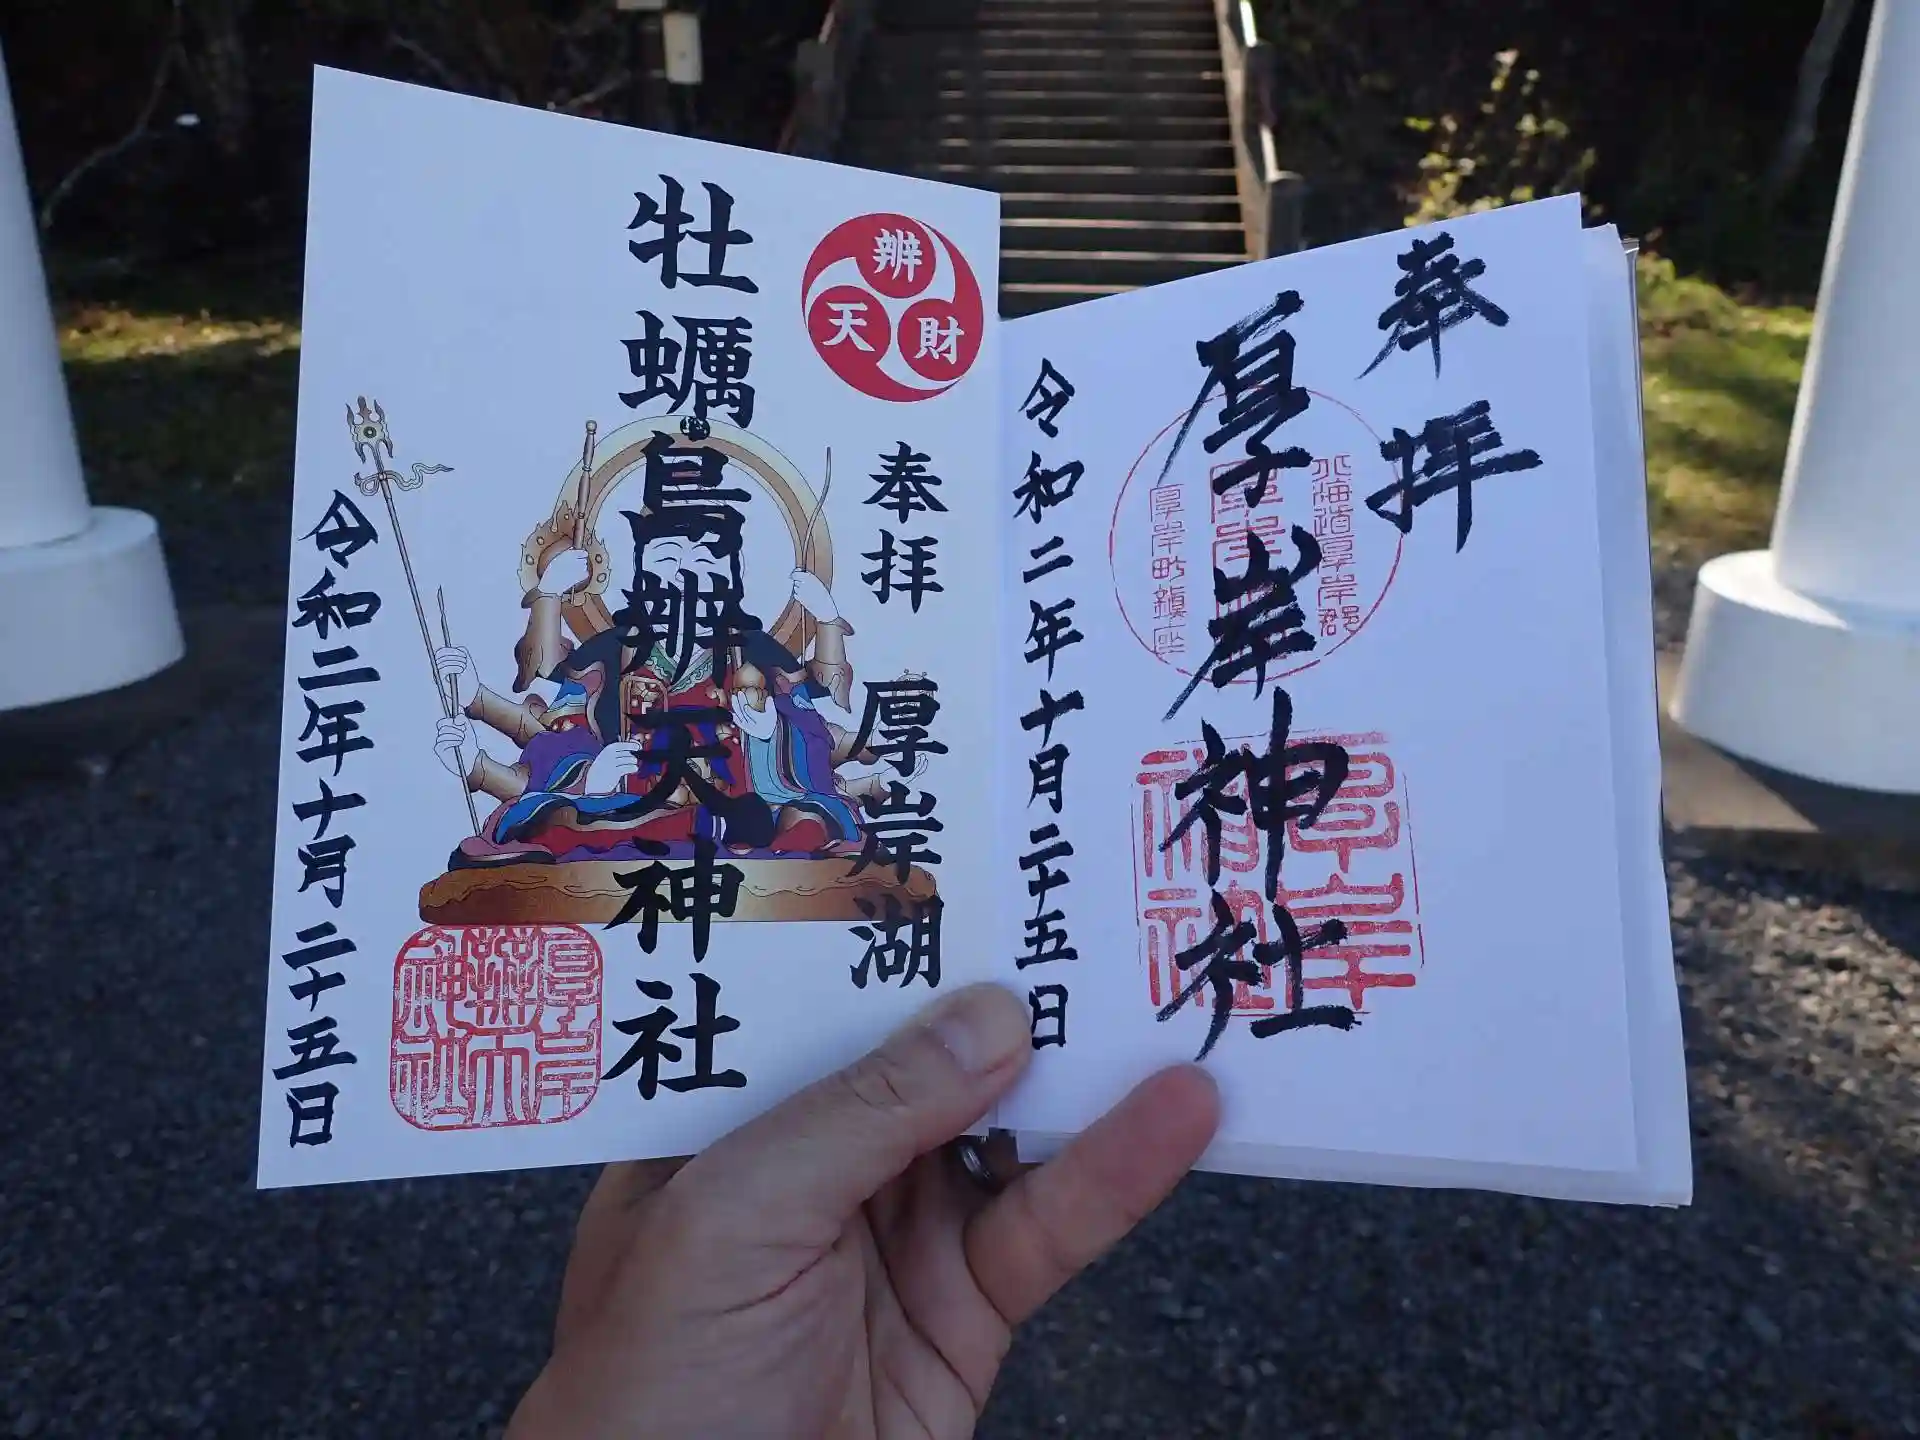 奉拝
厚岸神社
北海道厚岸郡
厚岸町鎮座
厚岸神社
令和二年十月二十五日
辨財天
奉拝 厚岸湖
牡蠣島辨天神社
厚岸辨天神社
令和二年十月二十五日